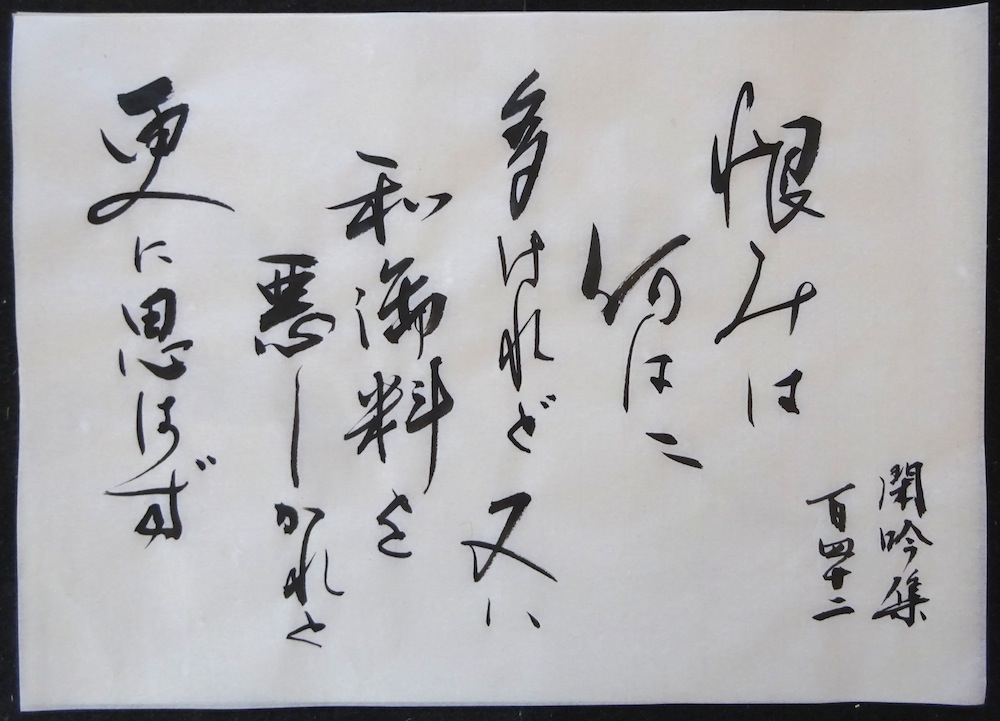 閑吟集
百四十二
恨みは
何はニ
多けれど又ハ
和御料を
悪しかれと
更に思はず